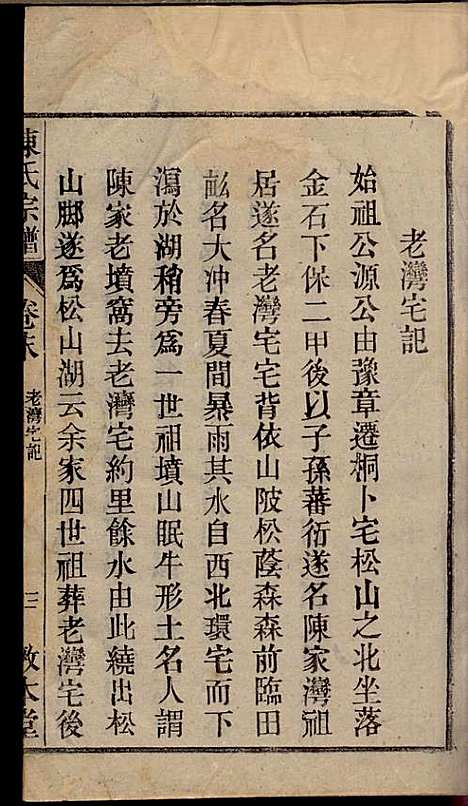 老灣宅記
始祖公源公由豫章遷桐卜宅松山之北坐落
金石下保二甲後以子孫蕃衍遂名陳家灣祖
居遂名老灣宅宅背依山陂松蔭森森前臨田
畆名大冲春夏間暴雨其水自西北環宅而下
瀉於湖稍旁爲一世祖墳山眠牛形土名人謂
陳家老墳窩去老灣宅約里餘水由此繞出松
山脚遂爲松山湖云余家四世祖葬老灣宅後
陳氏宗譜
卷末
老灣宅記
三
敦本堂